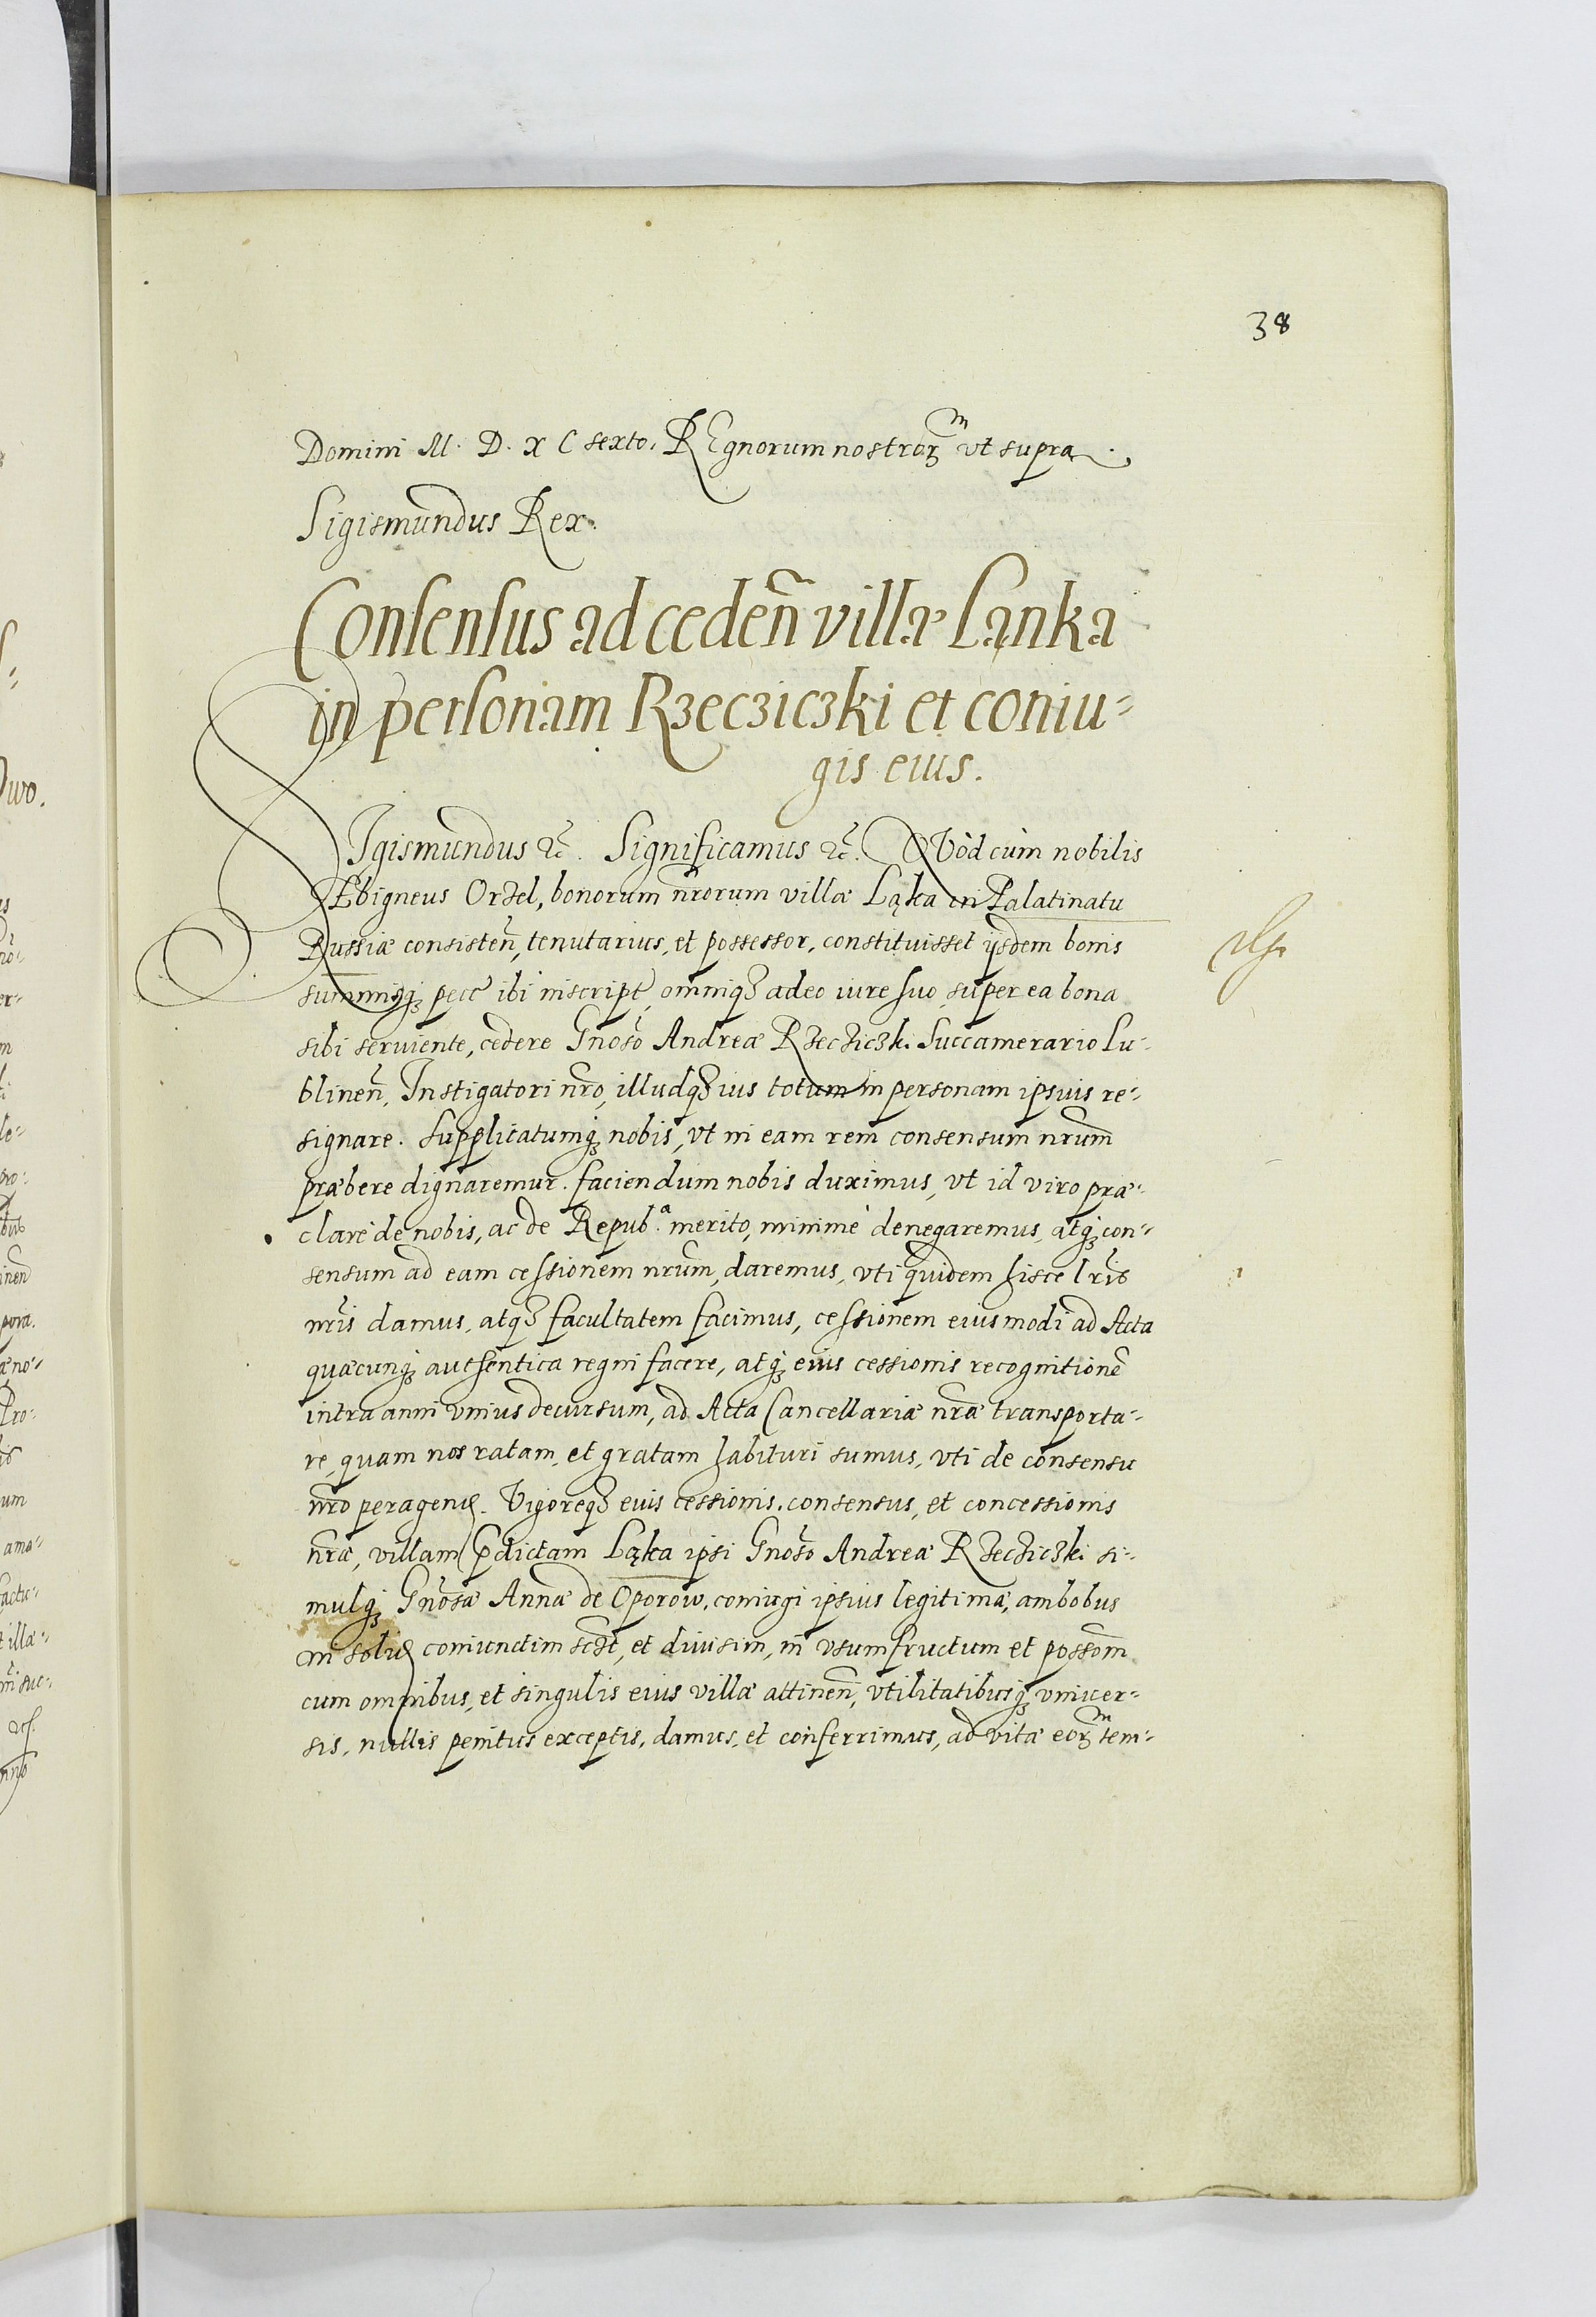 38
Domini M. D. X C sexto. REgnorum nostrorꝫ ᵐ vt supra.
Sigismundus Rex.
Consensus ad cedeñ villæ Lanka
in personam Rzecziczki et coniu=
gis eius.
SIgismundus ꝛc̃. Significamus ꝛc̃. QVòd cùm nobilis
Zbigneus Orzel, bonorum nr̃orum villæ Łąka in Palatinatu
Russiæ consisteñ, tenutarius, et possessor, constituisset ijsdem bonis
summisqꝫ pecc̃ ibi inscript, omniqꝫ adeo iure suo, super ea bona
sibi seruiente, cedere Gnoso Andreæ Rzecziczki Succamerario Lu-
blineñ, Instigatori nr̃o, illudqꝫ ius totum in personam ipsius re-
signare. Supplicatumqꝫ nobis, vt in eam rem consensum nr̃um
præbere dignaremur. faciendum nobis duximus, vt id viro præ-
clarè de nobis, ac de Repub.ᵃ merito, minimè denegaremus, atqꝫ con-
sensum ad eam cessionem nr̃um, daremus, vti quidem hisce lr̃is
nr̃is damus, atqꝫ facultatem facimus, cessionem eiusmodi ad Acta
quæcunqꝫ authentica regni facere, atqꝫ eius cessionis recognitionẽ
intra anni vnius decursum, ad Acta Cancellariæ nr̃æ transporta-
re, quam nos ratam, et gratam habituri sumus, vti de consensu
nr̃o peragend. Vigoreqꝫ eius cessionis, consensus, et concessionis
nr̃æ, villam p̃dictam Łąka ipsi Gnoso Andreæ Rzecziczki si-
mulqꝫ Gnosæ Annæ de Oporow, coniugi ipsius legitimæ, ambobus
in solid coniunctim sc̃dt, et diuisim, in vsumfructum et possom̃
cum omnibus, et singulis eius villæ attineñ, vtilitatibusqꝫ vniuer-
sis, nullis penitus exceptis, damus, et conferrimus, ad vitæ eorꝫ ᵐ tem-